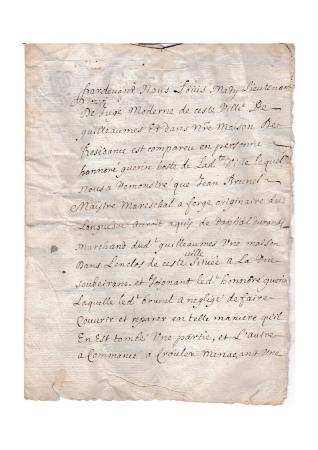 Pardevant Nous Louis Mady Lieutenant
De Juge Moderne de ceste Ville De
guilleaumes Et dans Nre Maison De
Residance est compareu en personne
honnoré guerin hoste de Lad. Ville lequel
Nous a Demonstré que Jean Brunel
Maistre Mareschal a forge originaire du
Languedoc auroit aquis de
Marchand dud. guilleaumes Une maison
Dans Lenclos de ceste ville Scituée a La Rue
soubeirane et Joignant led. honnoré guerin
Laquelle led. brunel a neglige de faire
Couvrir et reparer en telle maniere qu'il
En Est tombé Une partie, et L'autre
a Commancé a Crouler Menaçant Une